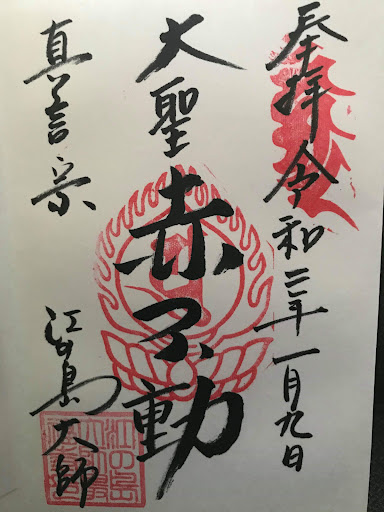 奉拝 令和三年一月九日
大聖赤不動
真言宗
江の島大師
江の島